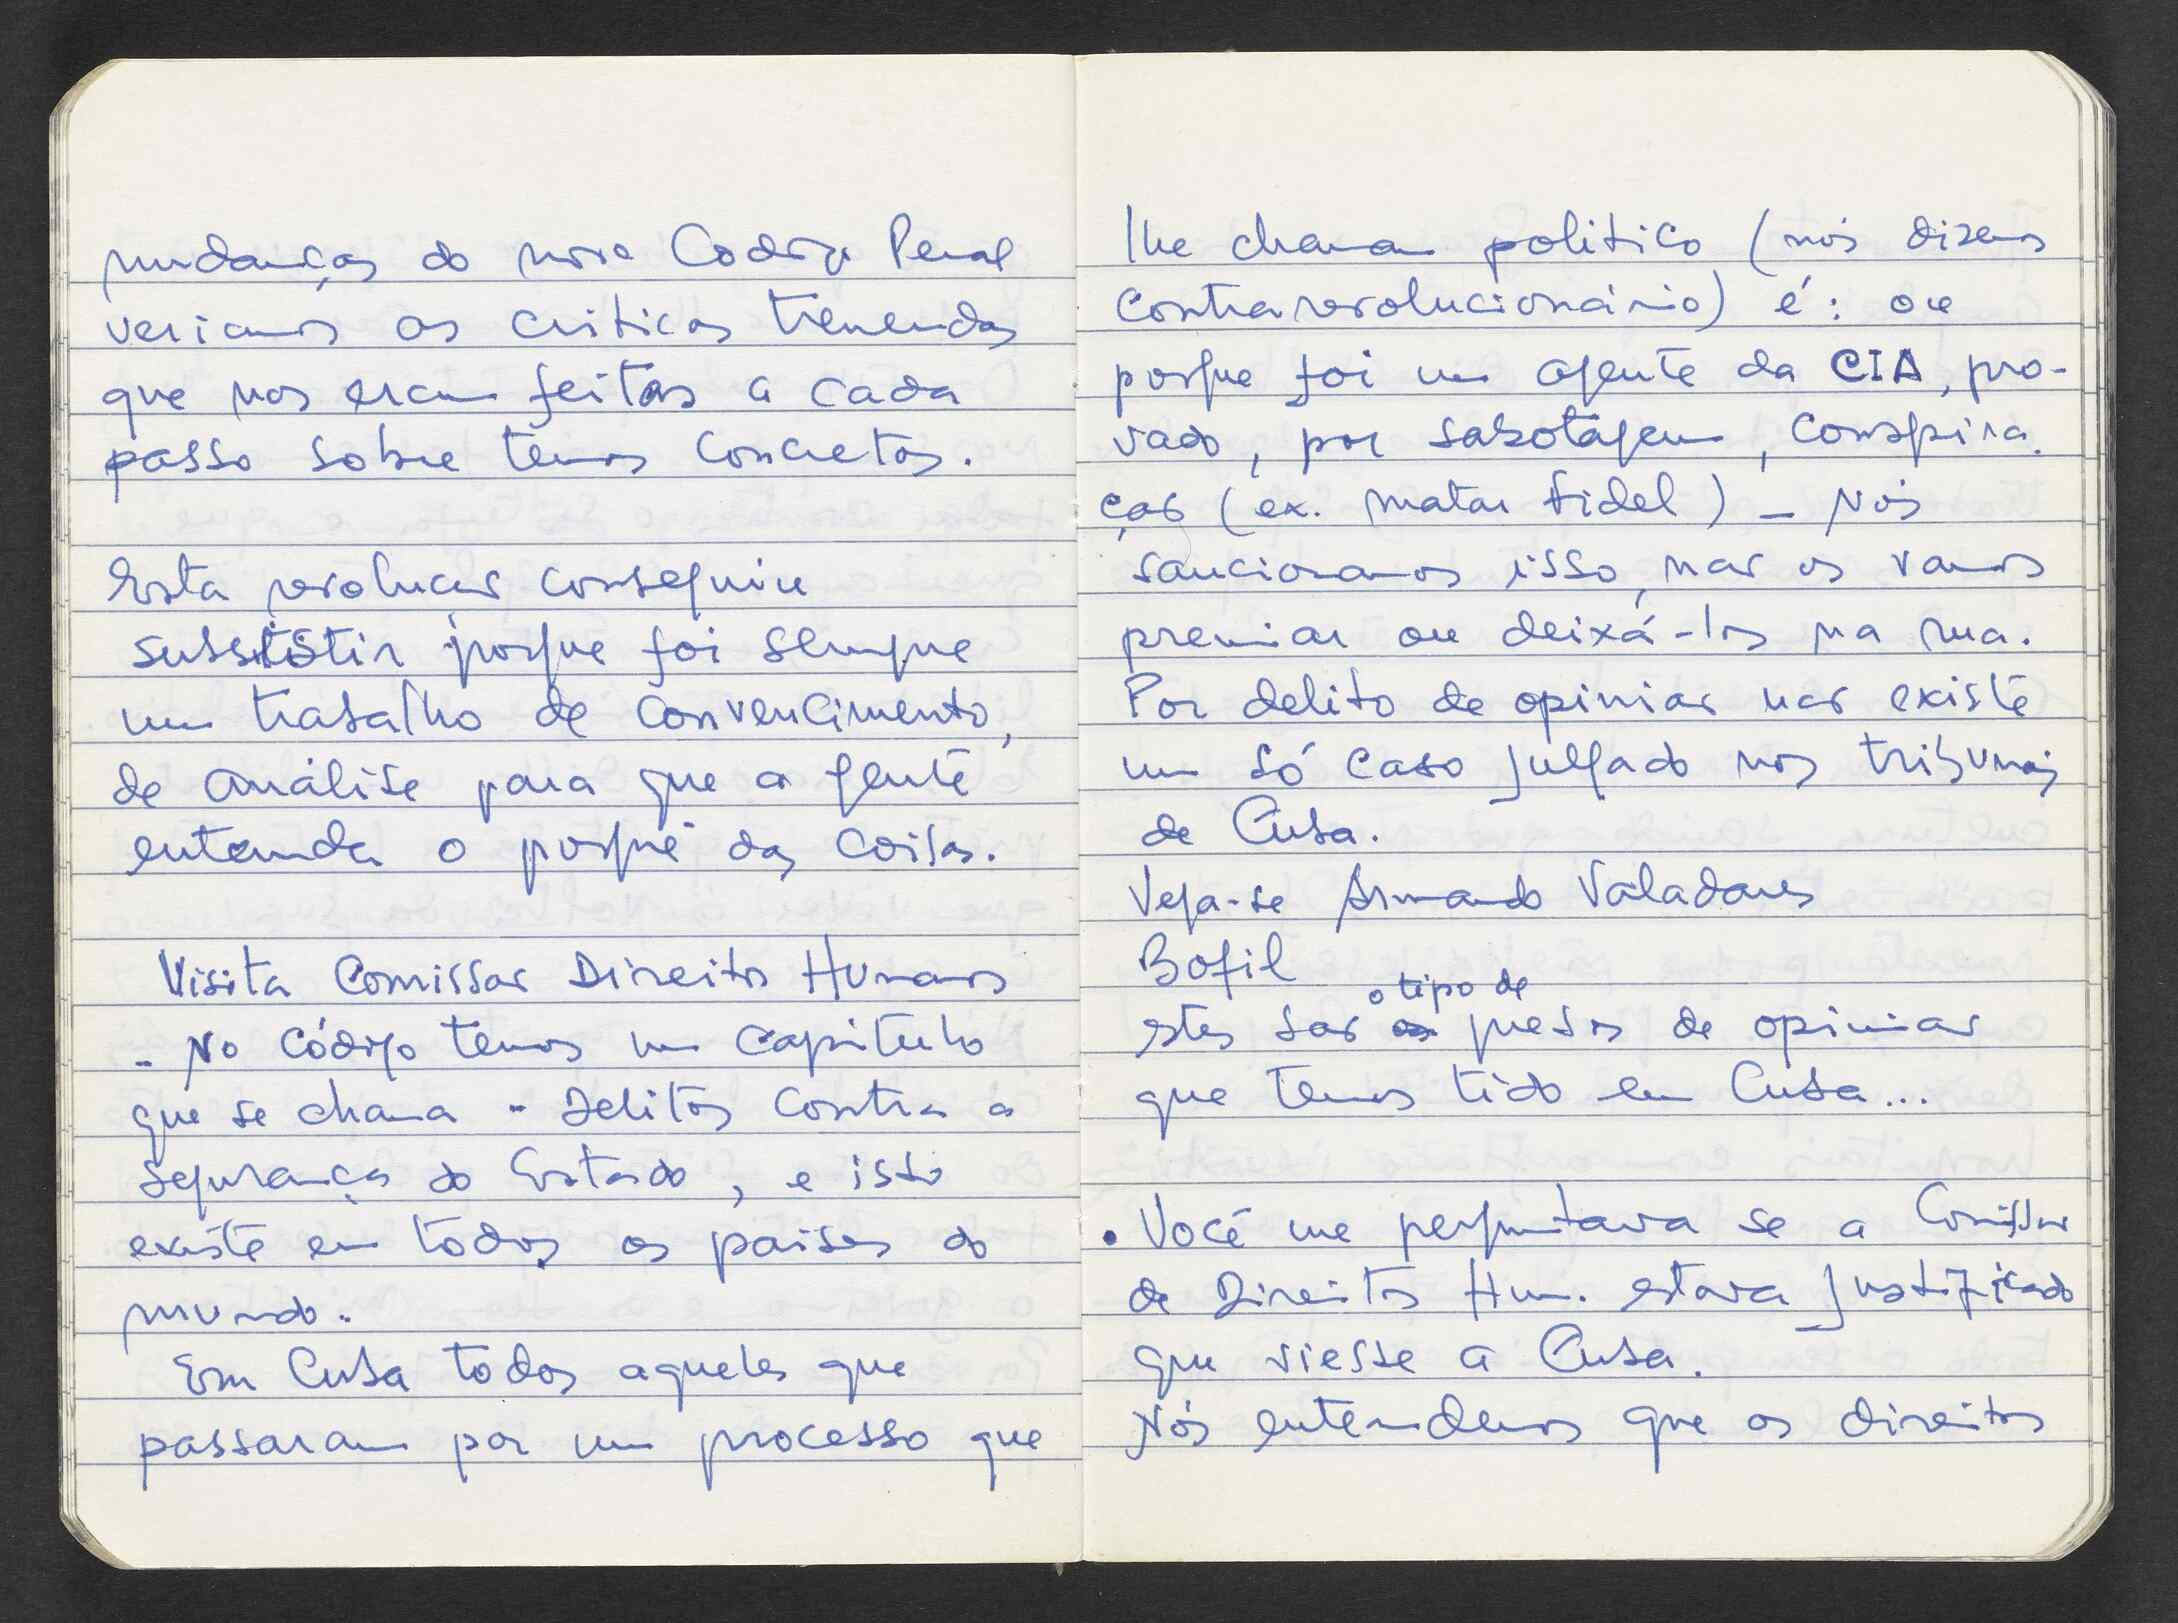 mudanças do novo Codigo Penal
veriamos as criticas tremendas
que nos eram feitas a cada
passo sobre temas concretos.
Esta revolucao conseguiu
subsistir porque foi sempre
um trabalho de convencimento,
de análise para que a gente
entenda o porquê das coisas.
Visita Comissao Direitos Humanos
- No Código temos um capitulo
que se chama - Delitos contra a
segurança do Estado, e isto
existe em todos os paises do
mundo.
Em Cuba todos aqueles que
passaram por um processo que
lhe chamam politico (nós dizemos
contrarevolucionário) é: ou
porque foi um agente da CIA, pro-
vado, por sabotagem, conspira
çao (ex. matar Fidel) - Nós
sancionamos isso, nao os vamos
premiar ou deixá-los na rua.
Por delito de opiniao nao existe
um só caso julgado nos tribunais
de Cuba.
Veja-se Armando Valadares
Bofil
estes sao o tipo de presos de opiniao
que temos tido em Cuba...
• Você me perguntava se a Comissao
de Direitos Hum. estava justificado
que viesse a Cuba.
Nós entendemos que os direitos